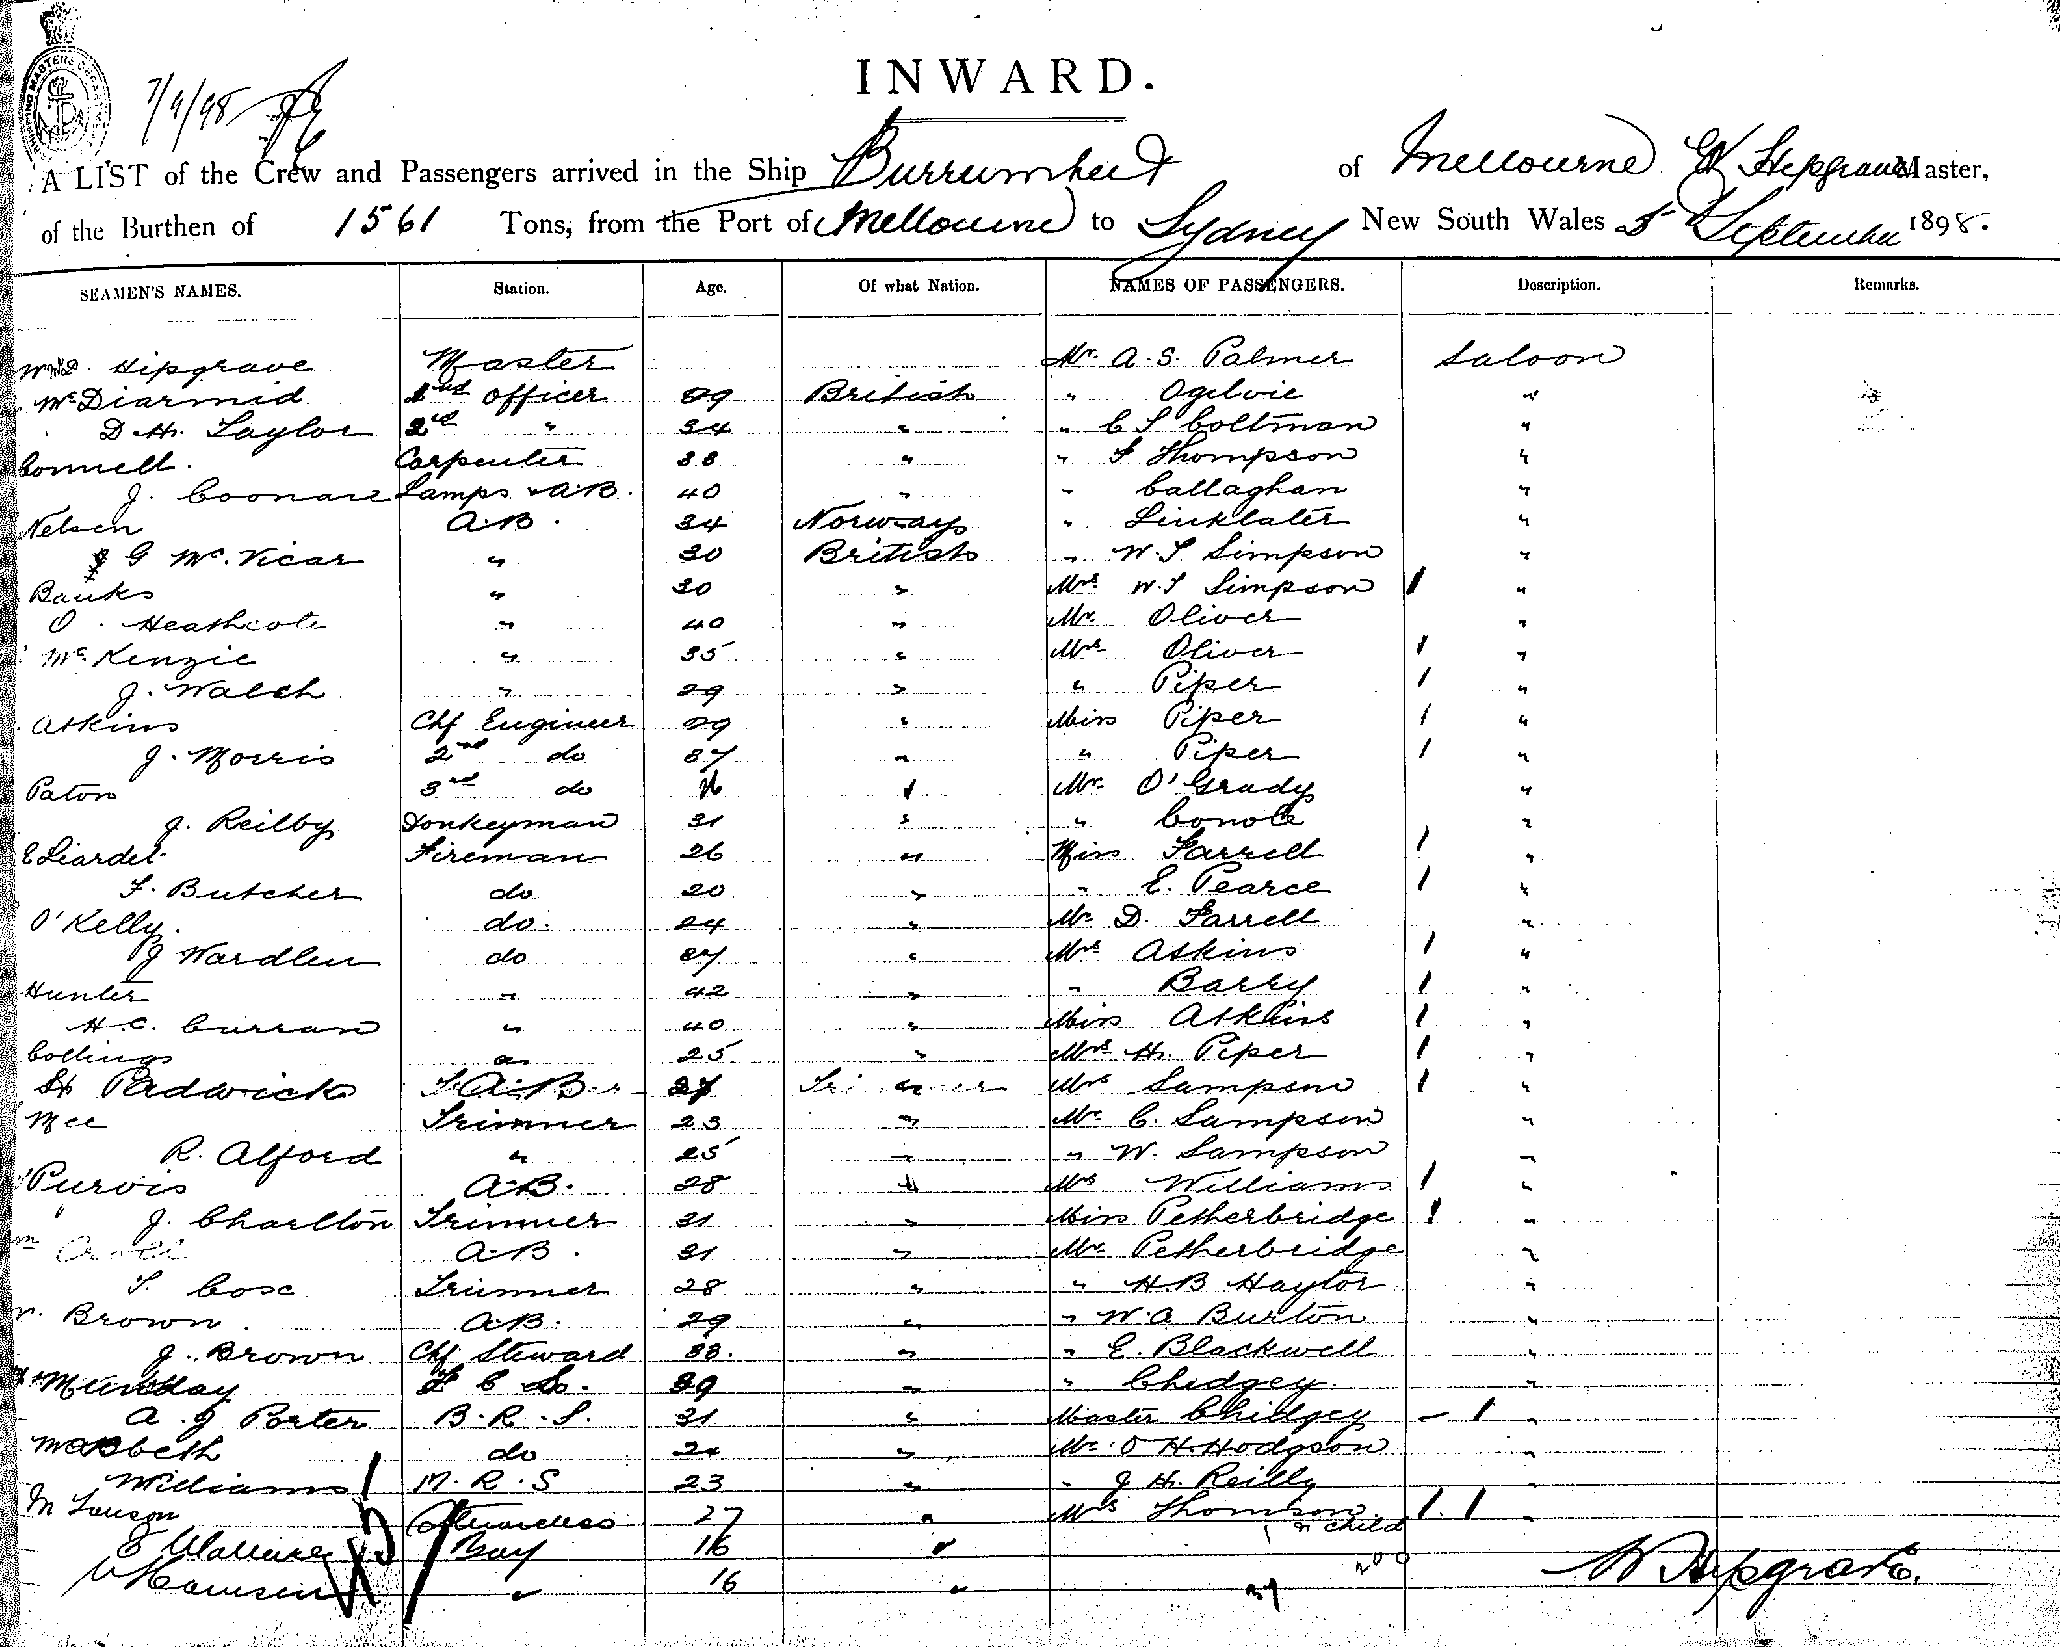 7/9/98
INWARD.
A LIST of the Crew and Passengers arrived in the Ship Burrumbeet of Melbourne W Hipgrave Master,
of the Burthen of 1561 Tons, from the Port of Melbourne to Sydney New South Wales 5th September 1898.
SEAMEN'S NAMES. Station. Age. Of what Nation. NAMES OF PASSENGERS. Description. Remarks.
Hipgrave Master Mr. A. S. Palmer Saloon
McDiarmid officer 29 British " Ogilvie "
D. H. Taylor 2nd " 34 " " C S Coltman "
Connell. Carpenter 38 " " S Thompson "
J. Coonan Lamps & A.B. 40 " " Callaghan "
Nelsen A.B. 34 Norway " Linklater "
G McVicar " 30 British " W. S. Simpson "
Banks " 30 " Mrs W. S Simpson 1 "
O. Heathcote " 40 " Mr Oliver "
McKenzie " 35 " Mrs Oliver 1 "
J. Walsh " 29 " " Piper 1 "
Askins Chf Engineer 29 " Miss Piper 1 "
J. Morris 2nd do 37 " " Piper 1 "
Paton 3rd do " Mr. O'Grady "
J. Reilby Donkeyman 31 " " Conole "
E Liardet Fireman 26 " Miss Farrell 1 "
F. Butcher do 20 " " E. Pearce 1 "
O'Kelly. do. 24 " Mr D. Farrell "
J Wardlew do 27 " Mrs Askins 1 "
Hunter " 42 " " Barry 1 "
H. C. Curran " 40 " Miss Askins 1 "
Collings " 25 " Mrs H. Piper 1 "
Padwick A.B. 27 " Mrs Sampson 1 "
Mee Trimmer 23 " Mr C. Sampson "
R. Alford " 25 " " W. Sampson "
Purvis A.B. 28 " Mrs Williams 1 "
J. Charlton Trimmer 31 " Miss Petherbridge 1 "
A.B. 31 " Mr Petherbridge "
S. Cose Trimmer 28 " " H. B Haylor "
Brown A.B. 29 " " W. A Burton "
J. Brown Chf Steward 38. " " E. Blackwell "
Munday 39 " " Chidgey. "
A. J Porter B. R. S. 31 " Master Chidgey – 1 "
Macbeth do 24 " Mr. O H. Hodgson "
Williams M. R. S 23 " " J H. Reilly "
M Lawson Stewardess 27 " Mrs Thomson 1. 1 "
E Wallace Boy 16 " & child
" 16 " 39
W Hipgrave.